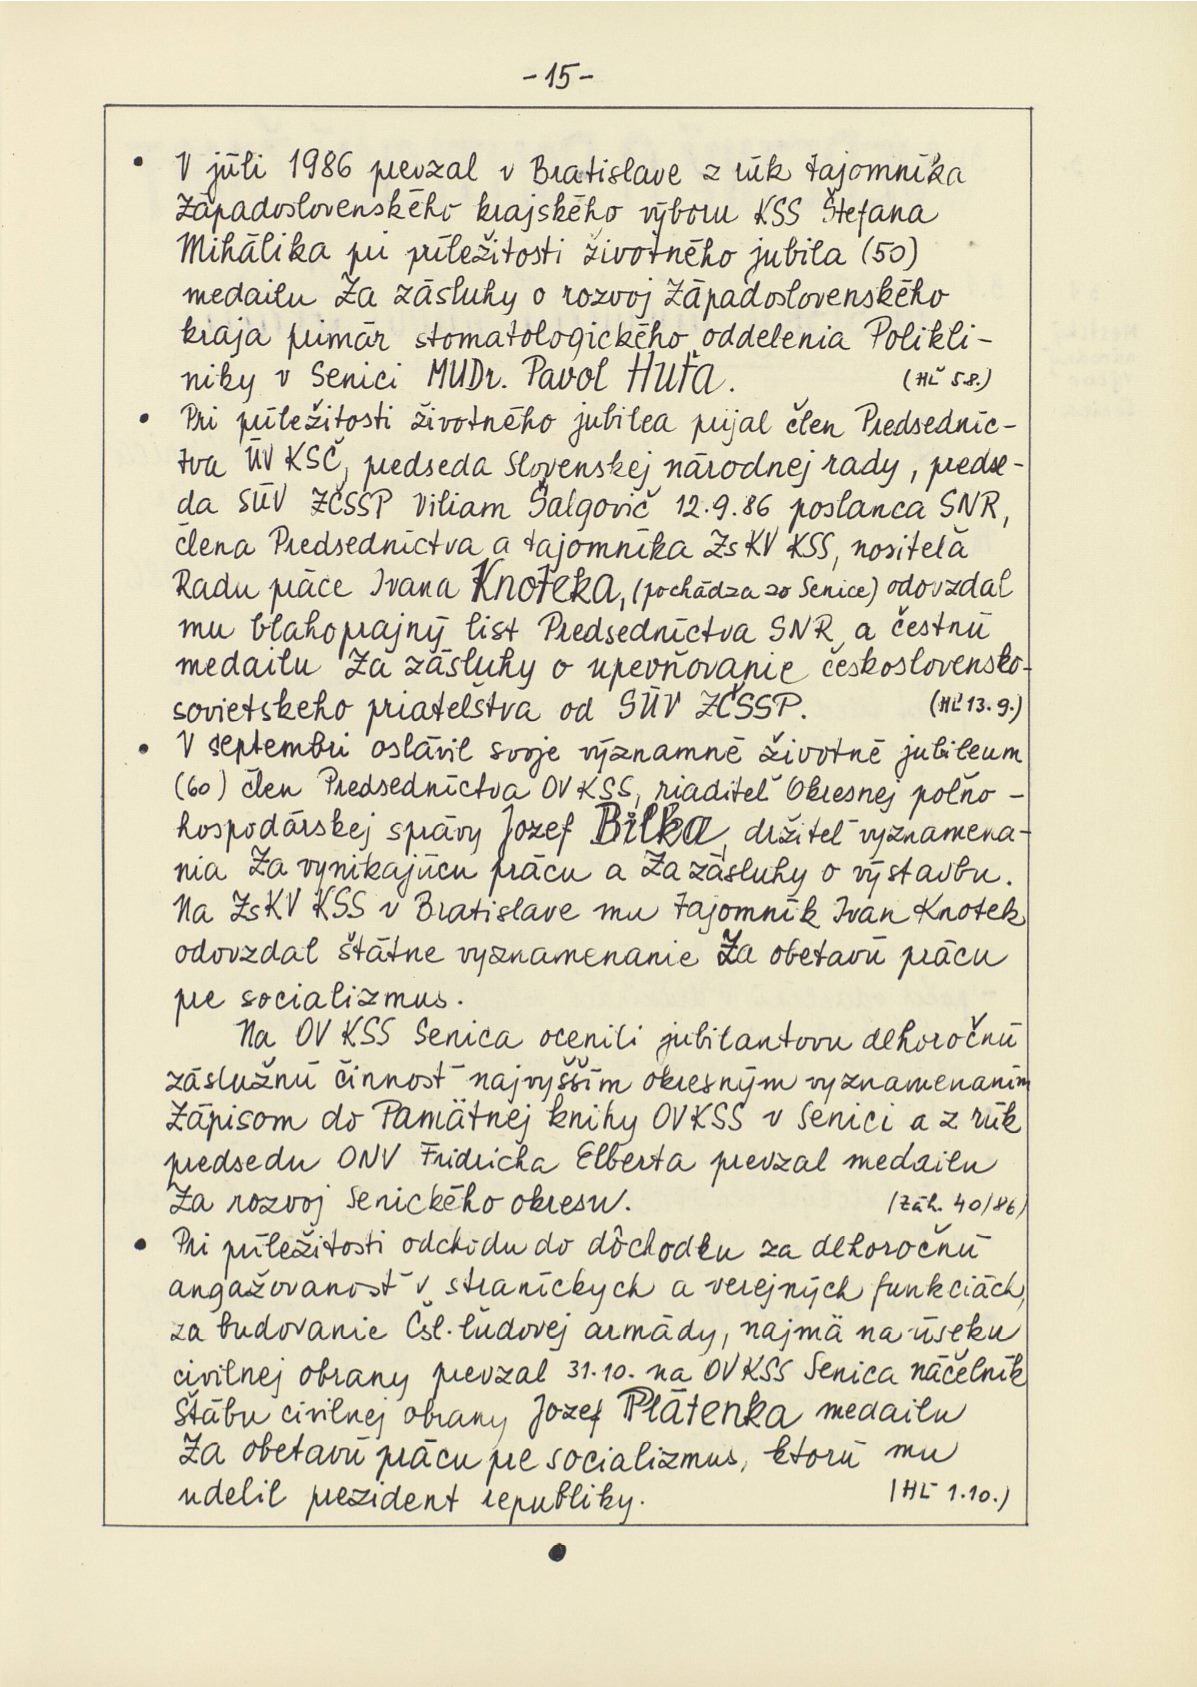 -15-
• V júli 1986 prevzal v Bratislave z rúk tajomníka
Západoslovenského krajského výboru KSS Štefana
Mihálika pri príležitosti životného jubila (50)
medailu Za zásluhy o rozvoj Západoslovenského
kraja primár stomatologického oddelenia Polikli-
niky v Senici MUDr. Pavol Huťa. (HĽ 5.8.)
• Pri príležitosti životného jubilea prijal člen Predsedníc-
tva ÚV KSČ, predseda Slovenskej národnej rady, predse-
da SÚV ZČSSP Viliam Šalgovič 12.9.86 poslanca SNR,
člena Predsedníctva a tajomníka ZsKV KSS, nositeľa
Radu práce Ivana Knoteka, (pochádza zo Senice) odovzdal
mu blahoprajný list Predsedníctva SNR a čestnú
medailu Za zásluhy o upevňovanie československo-
sovietskeho priateľstva od SÚV ZČSSP. (HĽ 13.9.)
• V septembri oslávil svoje významné životné jubileum
(60) člen Predsedníctva OV KSS, riaditeľ Okresnej poľno-
hospodárskej správy Jozef Bilka, držiteľ vyznamena-
nia Za vynikajúcu prácu a Za zásluhy o výstavbu.
Na ZsKV KSS v Bratislave mu tajomník Ivan Knotek
odovzdal štátne vyznamenanie Za obetavú prácu
pre socializmus.
Na OV KSS Senica ocenili jubilantovu dlhoročnú
záslužnú činnosť najvyšším okresným vyznamenaním
Zápisom do Pamätnej knihy OV KSS v Senici a z rúk
predsedu ONV Fridricha Elberta prevzal medailu
Za rozvoj Senického okresu. (Záh. 40/86)
• Pri príležitosti odchodu do dôchodku za dlhoročnú
angažovanosť v straníckych a verejných funkciách,
za budovanie Čsl. ľudovej armády, najmä na úseku
civilnej obrany prevzal 31.10. na OV KSS Senica náčelník
Štábu civilnej obrany Jozef Plátenka medailu
Za obetavú prácu pre socializmus, ktorú mu
udelil prezident republiky. (HĽ 1.10.)